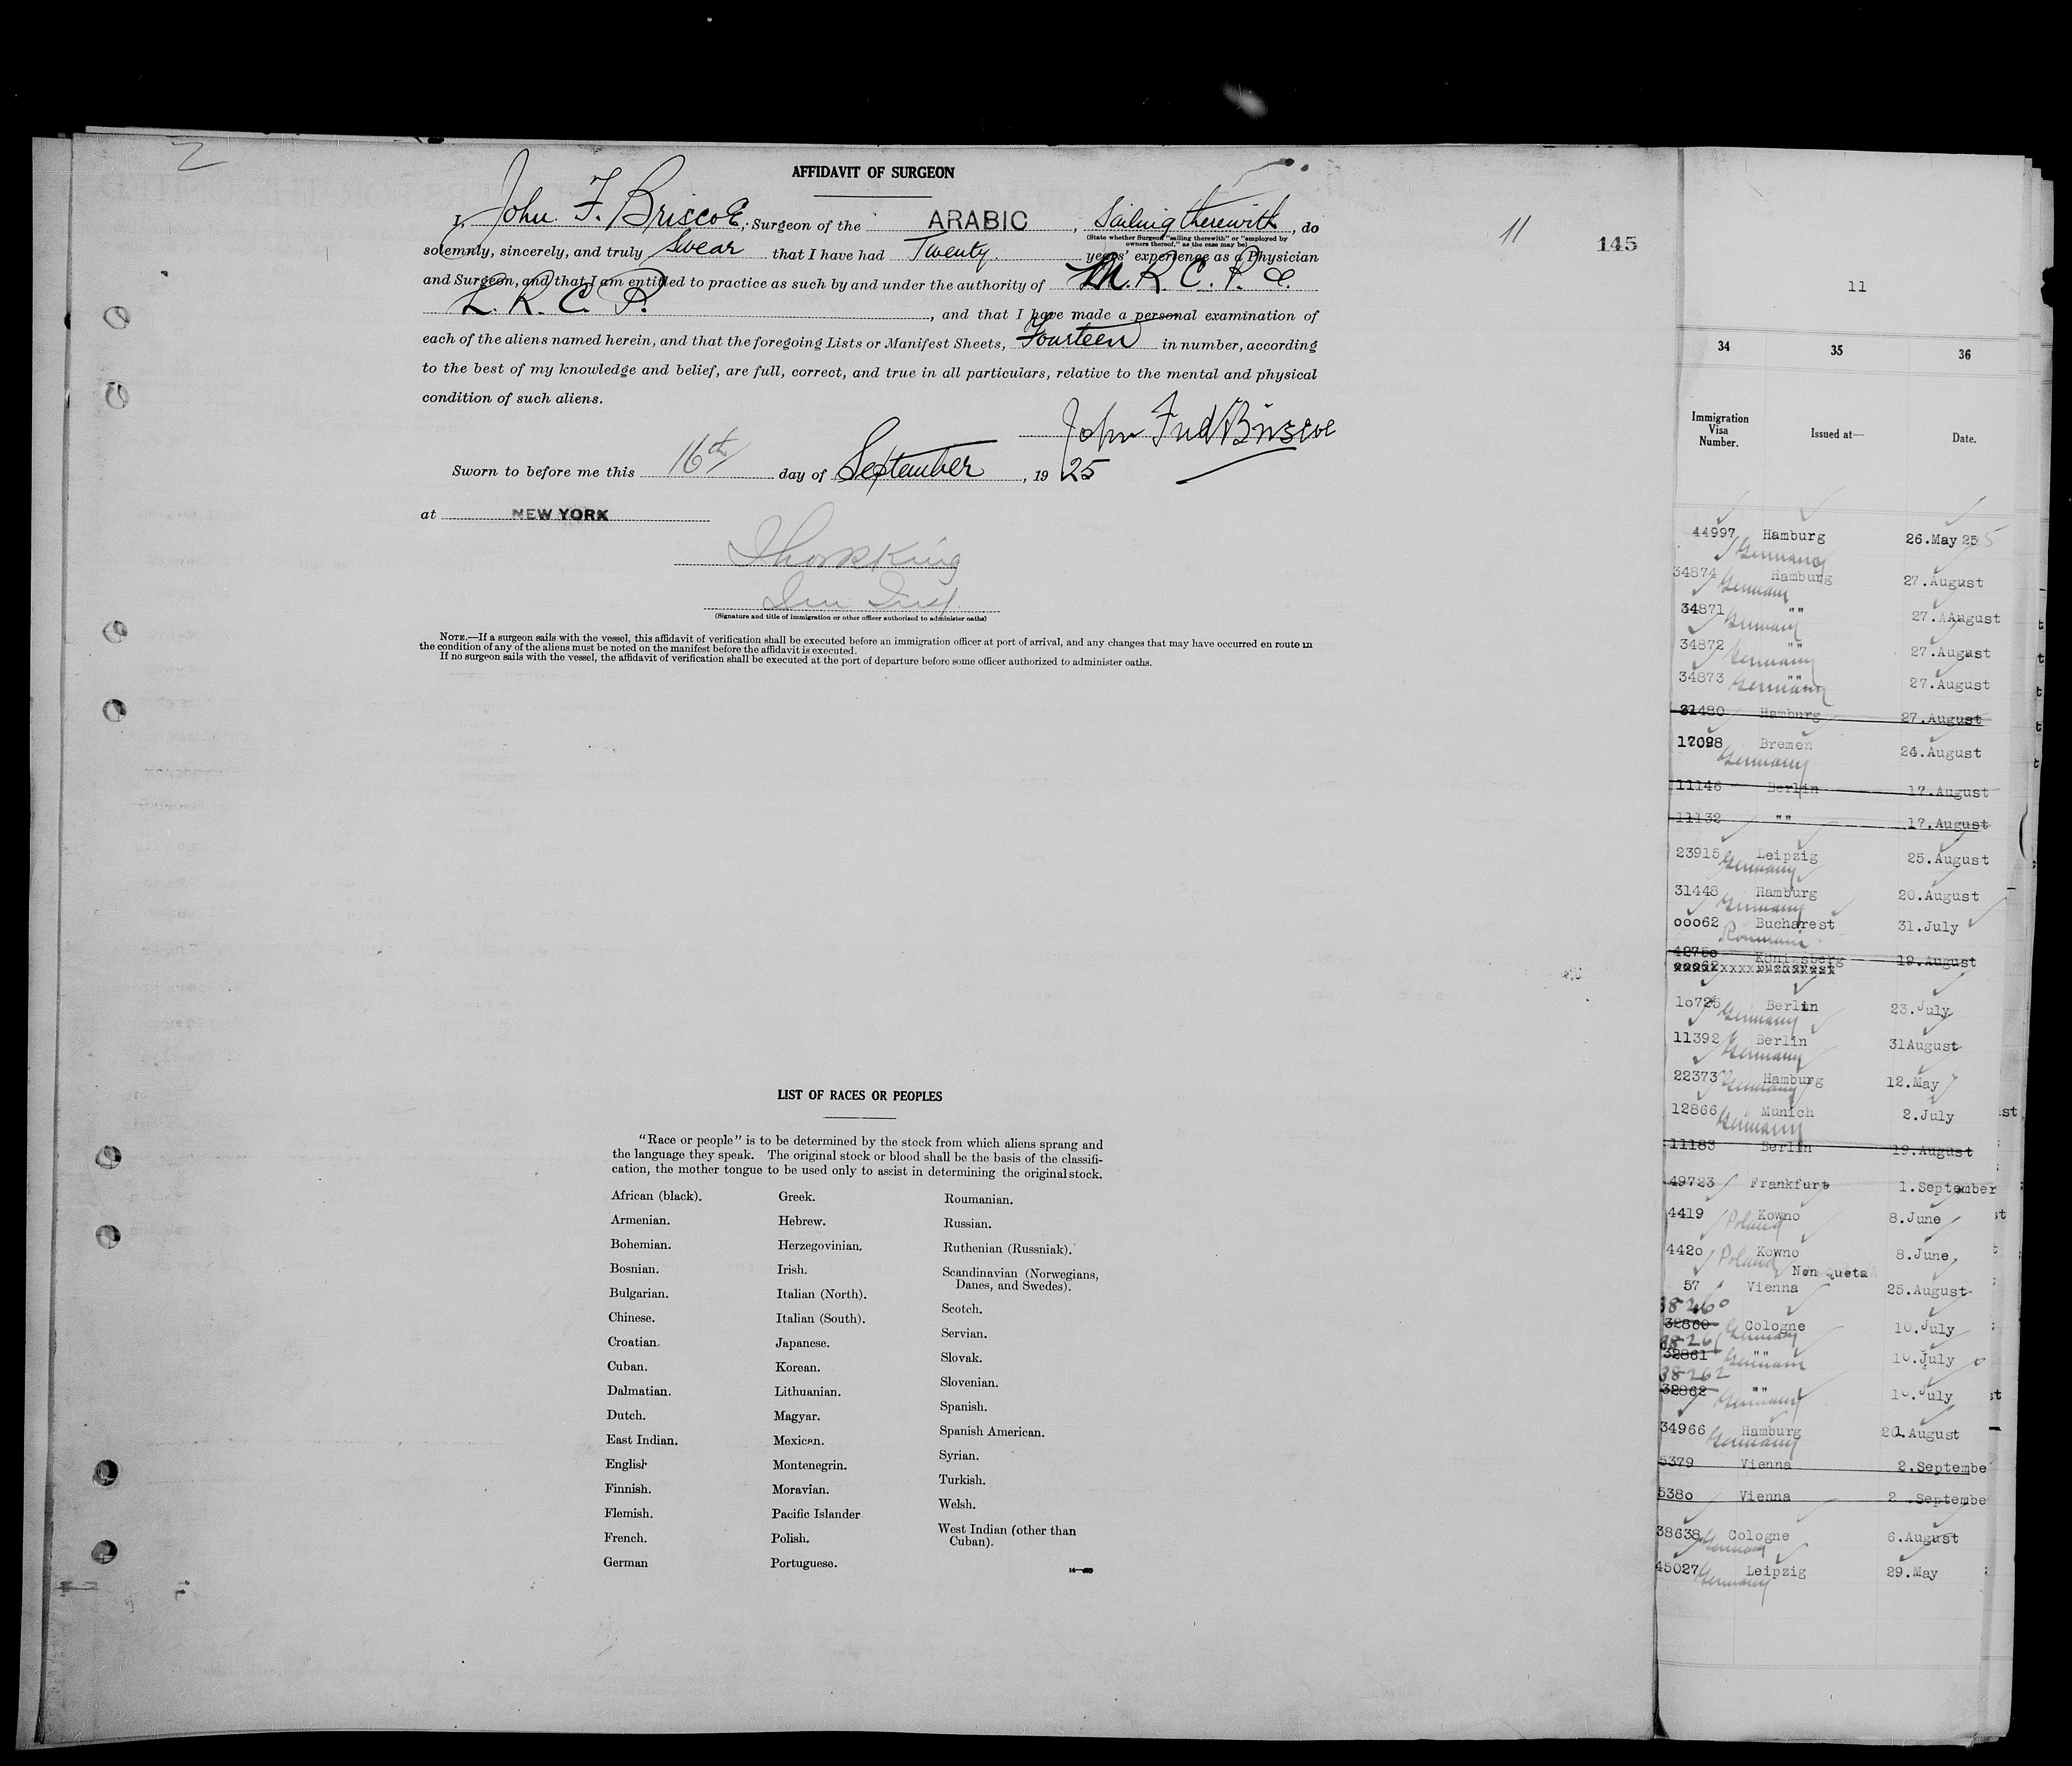 2
AFFIDAVIT OF SURGEON
I, John F. Briscoe, Surgeon of the ARABIC, Sailing therewith, do
(State whether Surgeon "sailing therewith" or "employed by owners thereof," as the case may be)
solemnly, sincerely, and truly swear that I have had Twenty years' experience as a Physician
and Surgeon, and that I am entitled to practice as such by and under the authority of M. R. C. P. &
L. R. C. P., and that I have made a personal examination of
each of the aliens named herein, and that the foregoing Lists or Manifest Sheets, Fourteen in number, according
to the best of my knowledge and belief, are full, correct, and true in all particulars, relative to the mental and physical
condition of such aliens.
John Fred Briscoe
Sworn to before me this 16th day of September, 1925
at NEW YORK
Imm Insp.
(Signature and title of immigration or other officer authorized to administer oaths)
NOTE.—If a surgeon sails with the vessel, this affidavit of verification shall be executed before an immigration officer at port of arrival, and any changes that may have occurred en route in
the condition of any of the aliens must be noted on the manifest before the affidavit is executed.
If no surgeon sails with the vessel, the affidavit of verification shall be executed at the port of departure before some officer authorized to administer oaths.
11
145
LIST OF RACES OR PEOPLES
"Race or people" is to be determined by the stock from which aliens sprang and
the language they speak. The original stock or blood shall be the basis of the classifi-
cation, the mother tongue to be used only to assist in determining the original stock.
African (black).
Armenian.
Bohemian.
Bosnian.
Bulgarian.
Chinese.
Croatian.
Cuban.
Dalmatian.
Dutch.
East Indian.
English
Finnish.
Flemish.
French.
German
Greek.
Hebrew.
Herzegovinian.
Irish.
Italian (North).
Italian (South).
Japanese.
Korean.
Lithuanian.
Magyar.
Mexican.
Montenegrin.
Moravian.
Pacific Islander
Polish.
Portuguese.
Roumanian.
Russian.
Ruthenian (Russniak).
Scandinavian (Norwegians,
Danes, and Swedes).
Scotch.
Servian.
Slovak.
Slovenian.
Spanish.
Spanish American.
Syrian.
Turkish.
Welsh.
West Indian (other than
Cuban).
11
34 35 36
Immigration Visa Number. Issued at— Date.
44997 Hamburg 26.May 25
Germany
34874 Hamburg 27.August
Germany
34871 "" 27.August
Germany
34872 "" 27.August
Germany
34873 "" 27.August
Germany
31480 Hamburg 27.August
17098 Bremen 24.August
Germany
11146 Berlin 17.August
11132 "" 17.August
23915 Leipzig 25.August
Germany
31448 Hamburg 20.August
Germany
ooo62 Bucharest 31.July
Roumania
4275o Königsberg 19.August
1o725 Berlin 23.July
Germany
11392 Berlin 31August
Germany
22373 Hamburg 12.May
Germany
12866 Munich 2.July
Germany
11183 Berlin 19.August
49723 Frankfurt 1.September
4419 Kowno 8.June
Poland
442o Kowno 8.June
Poland
Non Quota
57 Vienna 25.August
38260
32860 Cologne 10.July
Germany
38261
32861 "" 10.July
Germany
38262
32862 "" 10.July
Germany
34966 Hamburg 21.August
Germany
5379 Vienna 2.Septembe
538o Vienna 2.Septembe
38638 Cologne 6.August
Germany
45027 Leipzig 29.May
Germany